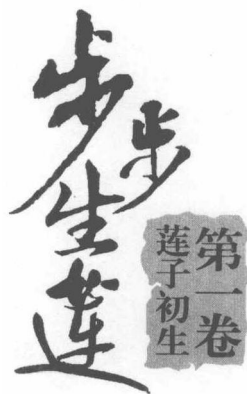 步步生莲
第一卷
莲子初生